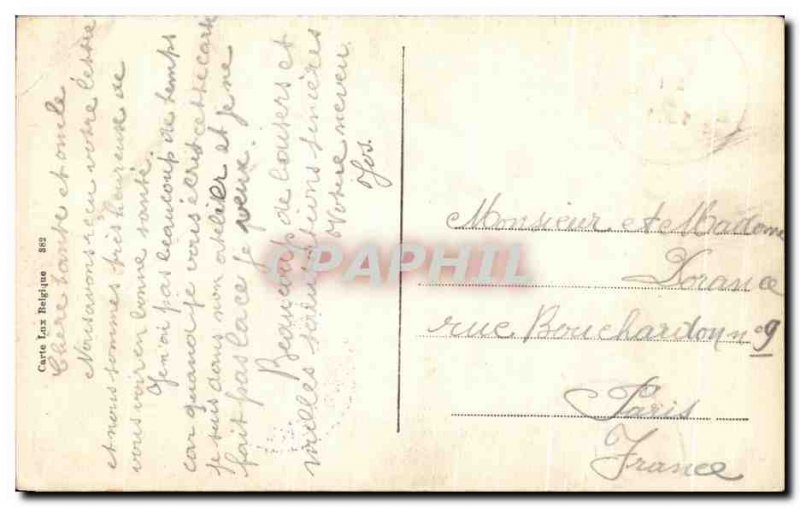 Chère tante et oncle
Nous avons reçu votre lettre
et nous sommes très heureuse de
vous voir en bonne santé.
Jen ai pas beaucoup de temps
car quand je vous écris cette carte
je suis dans mon atelier et je ne
fait pas la ce je veux.
Beaucoup de baisers et
milles salutations sincères
Votre neveu
Jos.
Carte Lux Belgique 882
CPAPHIL
Monsieur et Madame
Dorance
rue Bouchardon n° 9
Paris
France